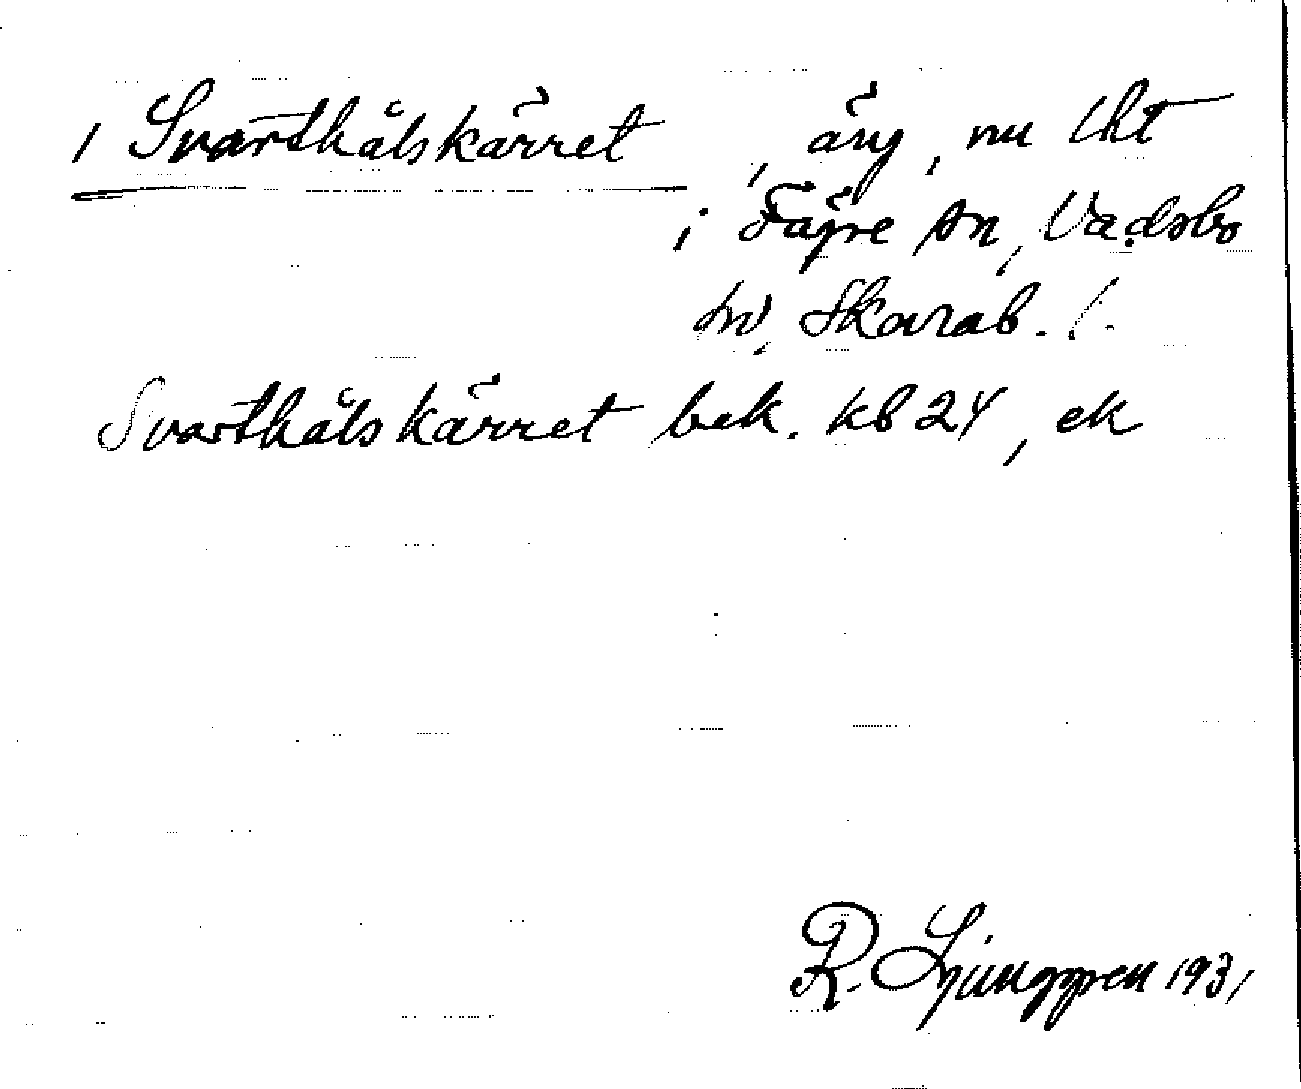 / Svarthålskärret, äng, nu lht
i Fägre sn, Vadsbo
hd, Skarab. l.
Svarthålskärret bek. kb 24, ek
R. Ljunggren 1931